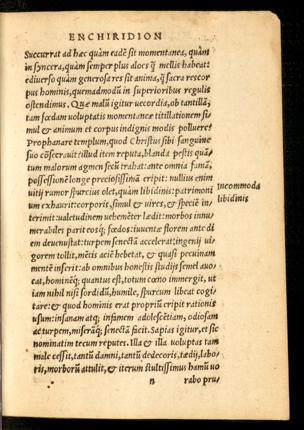 ENCHIRIDION
Succurrat ad hæc quàm eadẽ sit momentanea, quàm
in syncera, quàm semper plus aloes q̃ mellis habeat:
ediuerso quàm generosa res sit anima, q̃ sacra res cor
pus hominis, quemadmodũ in superioribus regulis
ostendimus. Quæ malũ igitur uecordia, ob tantillã,
tam fœdam uoluptatis momentaneæ titillationem si-
mul & animum et corpus indignis modis polluere?
Prophanare templum, quod Christus sibi sanguine
suo cõsecrauit: illud item reputa, blanda pestis quã-
tum malorum agmen secũ trahat: ante omnia famã,
possessionẽ longe preciosissimã eripit: nullius enim
uitij rumor spurcius olet, quàm libidinis: patrimoni
um exhaurit: corporis, simul & uires, & speciẽ in-
terimit: ualetudinem uehemẽter lædit: morbos innu
merabiles parit eosq́; fœdos: iuuentæ florem ante di
em deuenustat: turpem senectã accelerat: ingenij ui-
gorem tollit, mẽtis aciẽ hebetat, & quasi pecuinam
mentẽ inserit: ab omnibus honestis studijs semel auo
cat, hominẽq́; quantus est, totum cœno immergit, ut
iam nihil nisi sordidũ, humile, spurcum libeat cogi
tare: & quod hominis erat propriũ eripit rationis
usum: insanam atq; infamem adolescẽtiam, odiosam
ac turpem, miserãq́; senectã facit. Sapias igitur, et sic
nominatim tecum reputes. Illa & illa uoluptas tam
male cessit, tantũ damni, tantũ dedecoris, tædij, labo
ris, morborũ attulit, & iterum stultissimus hamũ uo
n rabo pru/
Incommoda
libidinis